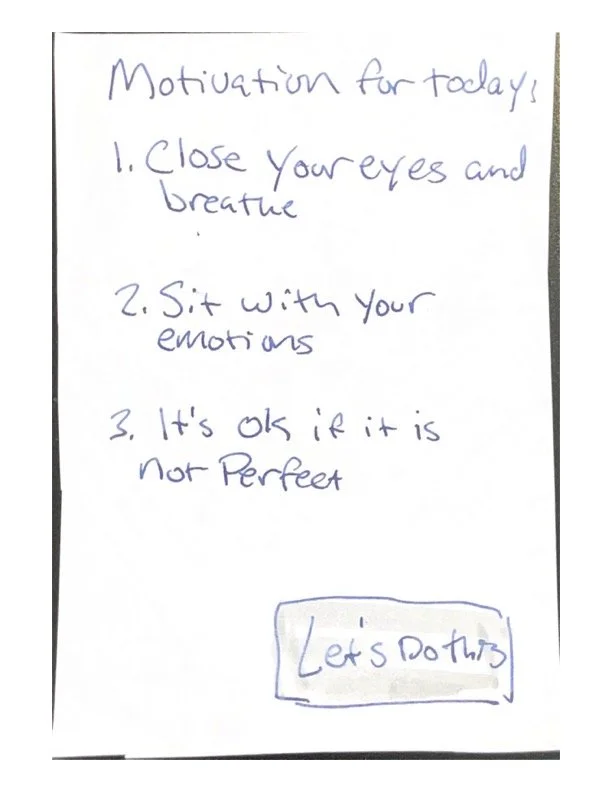 Motivation for today:
1. Close your eyes and
breathe
2. Sit with your
emotions
3. It's ok if it is
not Perfect
Let's Do this